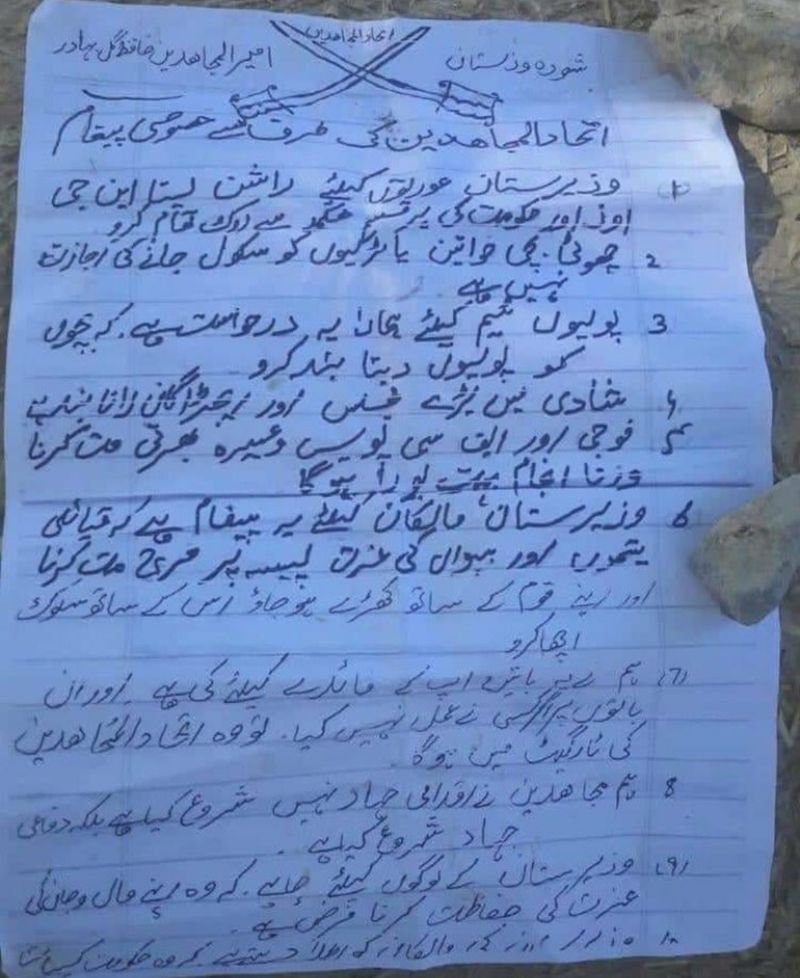 اتحاد المجاهدین
شورہ وزستان
امیر المجاہدین حافظ گل بہادر
اتحاد المجاھدین کی طرف سے خصوصی پیغام
1 وزیرستان عورتوں کیلئے راشن لینا این جی
اوز اور حکومت کی ہر قسم سے روک تمام کرو
2 چھوٹی بچی خواتین یا لڑکیوں کو سکول جانے کی اجازت
نہیں ہے
3 پولیوں ٹیم کیلئے ہمارا یہ درخواست ہے. کہ بچوں
کو پولیوں دینا بند کرو
4 شادی میں بڑے اور
5 فوجی اور ایف سی پولیس وغیرہ بھرتی مت کرنا
ورنا انجام بہت بورا ہوگا
6 وزیرستان مالکان کیلئے یہ پیغام ہے کہ قبائلی
یتموں اور بیواں کی عزت پیسہ پر مت کرنا
اور اپنے قوم کے ساتھ کھڑے ہو جاؤ اس کے ساتھ سلوک
اچھا کرو
(7) ہم نے یہ باتیں اپ کے فائدے کیلئے کی ہے. اور ان
باتوں پر اگر کسی نے عمل نہیں کیا. تو وہ اتحاد المُجاھدین
کی ٹارگیٹ میں ہوگا.
8 ہم مجاھدین نے اقدامی جہاد نہیں شروع کیا ہے بلکہ دفاعی
جہاد شروع کیا ہے.
(9) وزیرستان کے لوگوں کیلئے چاہے. کہ وہ اپنے مال وجان کی
عزت کی حفاظت کرنا فرض ہے.